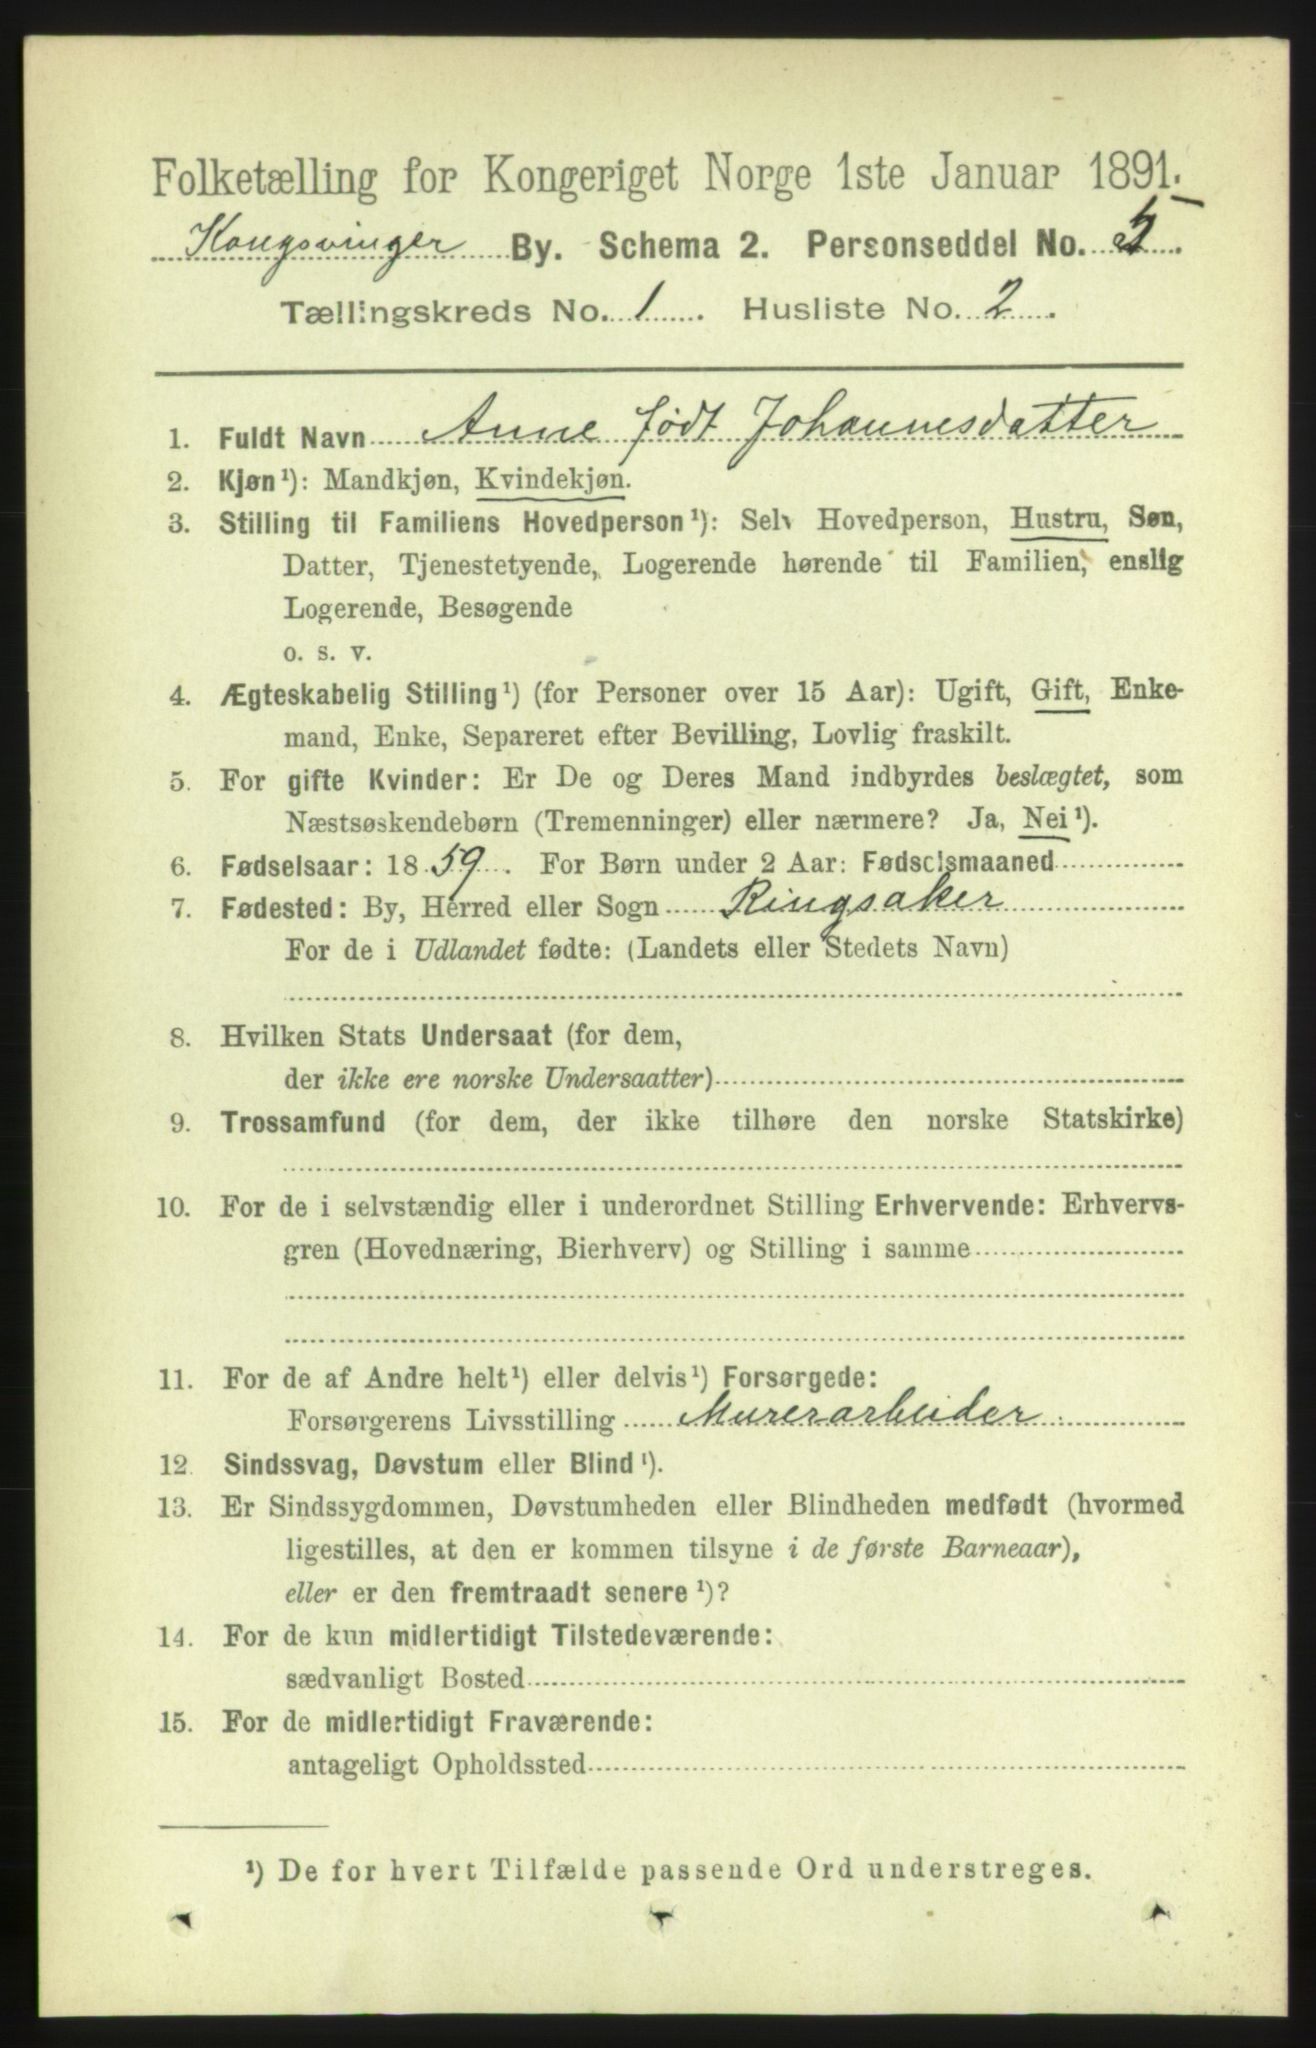 Folketælling for Kongeriget Norge 1ste Januar 1891.
Kongsvinger By. Schema 2. Personseddel No. 5.
Tællingskreds No. 1. Husliste No. 2.
1. Fuldt Navn Anne født Johannesdatter
2. Kjøn¹): Mandkjøn, Kvindekjøn.
3. Stilling til Familiens Hovedperson¹): Selv Hovedperson, Hustru, Søn,
Datter, Tjenestetyende, Logerende hørende til Familien, enslig
Logerende, Besøgende
o. s. v.
4. Ægteskabelig Stilling¹) (for Personer over 15 Aar): Ugift, Gift, Enke-
mand, Enke, Separeret efter Bevilling, Lovlig fraskilt.
5. For gifte Kvinder: Er De og Deres Mand indbyrdes beslægtet, som
Næstsøskendebørn (Tremenninger) eller nærmere? Ja, Nei¹).
6. Fødselsaar: 1859. For Børn under 2 Aar: Fødselsmaaned
7. Fødested: By, Herred eller Sogn Ringsaker
For de i Udlandet fødte: (Landets eller Stedets Navn)
8. Hvilken Stats Undersaat (for dem,
der ikke ere norske Undersaatter)
9. Trossamfund (for dem, der ikke tilhøre den norske Statskirke)
10. For de i selvstændig eller i underordnet Stilling Erhvervende: Erhvervs-
gren (Hovednæring, Bierhverv) og Stilling i samme
11. For de af Andre helt¹) eller delvis¹) Forsørgede:
Forsørgerens Livsstilling Murerarbeider
12. Sindssvag, Døvstum eller Blind¹).
13. Er Sindssygdommen, Døvstumheden eller Blindheden medfødt (hvormed
ligestilles, at den er kommen tilsyne i de første Barneaar),
eller er den fremtraadt senere¹)?
14. For de kun midlertidigt Tilstedeværende:
sædvanligt Bosted
15. For de midlertidigt Fraværende:
antageligt Opholdssted
¹) De for hvert Tilfælde passende Ord understreges.